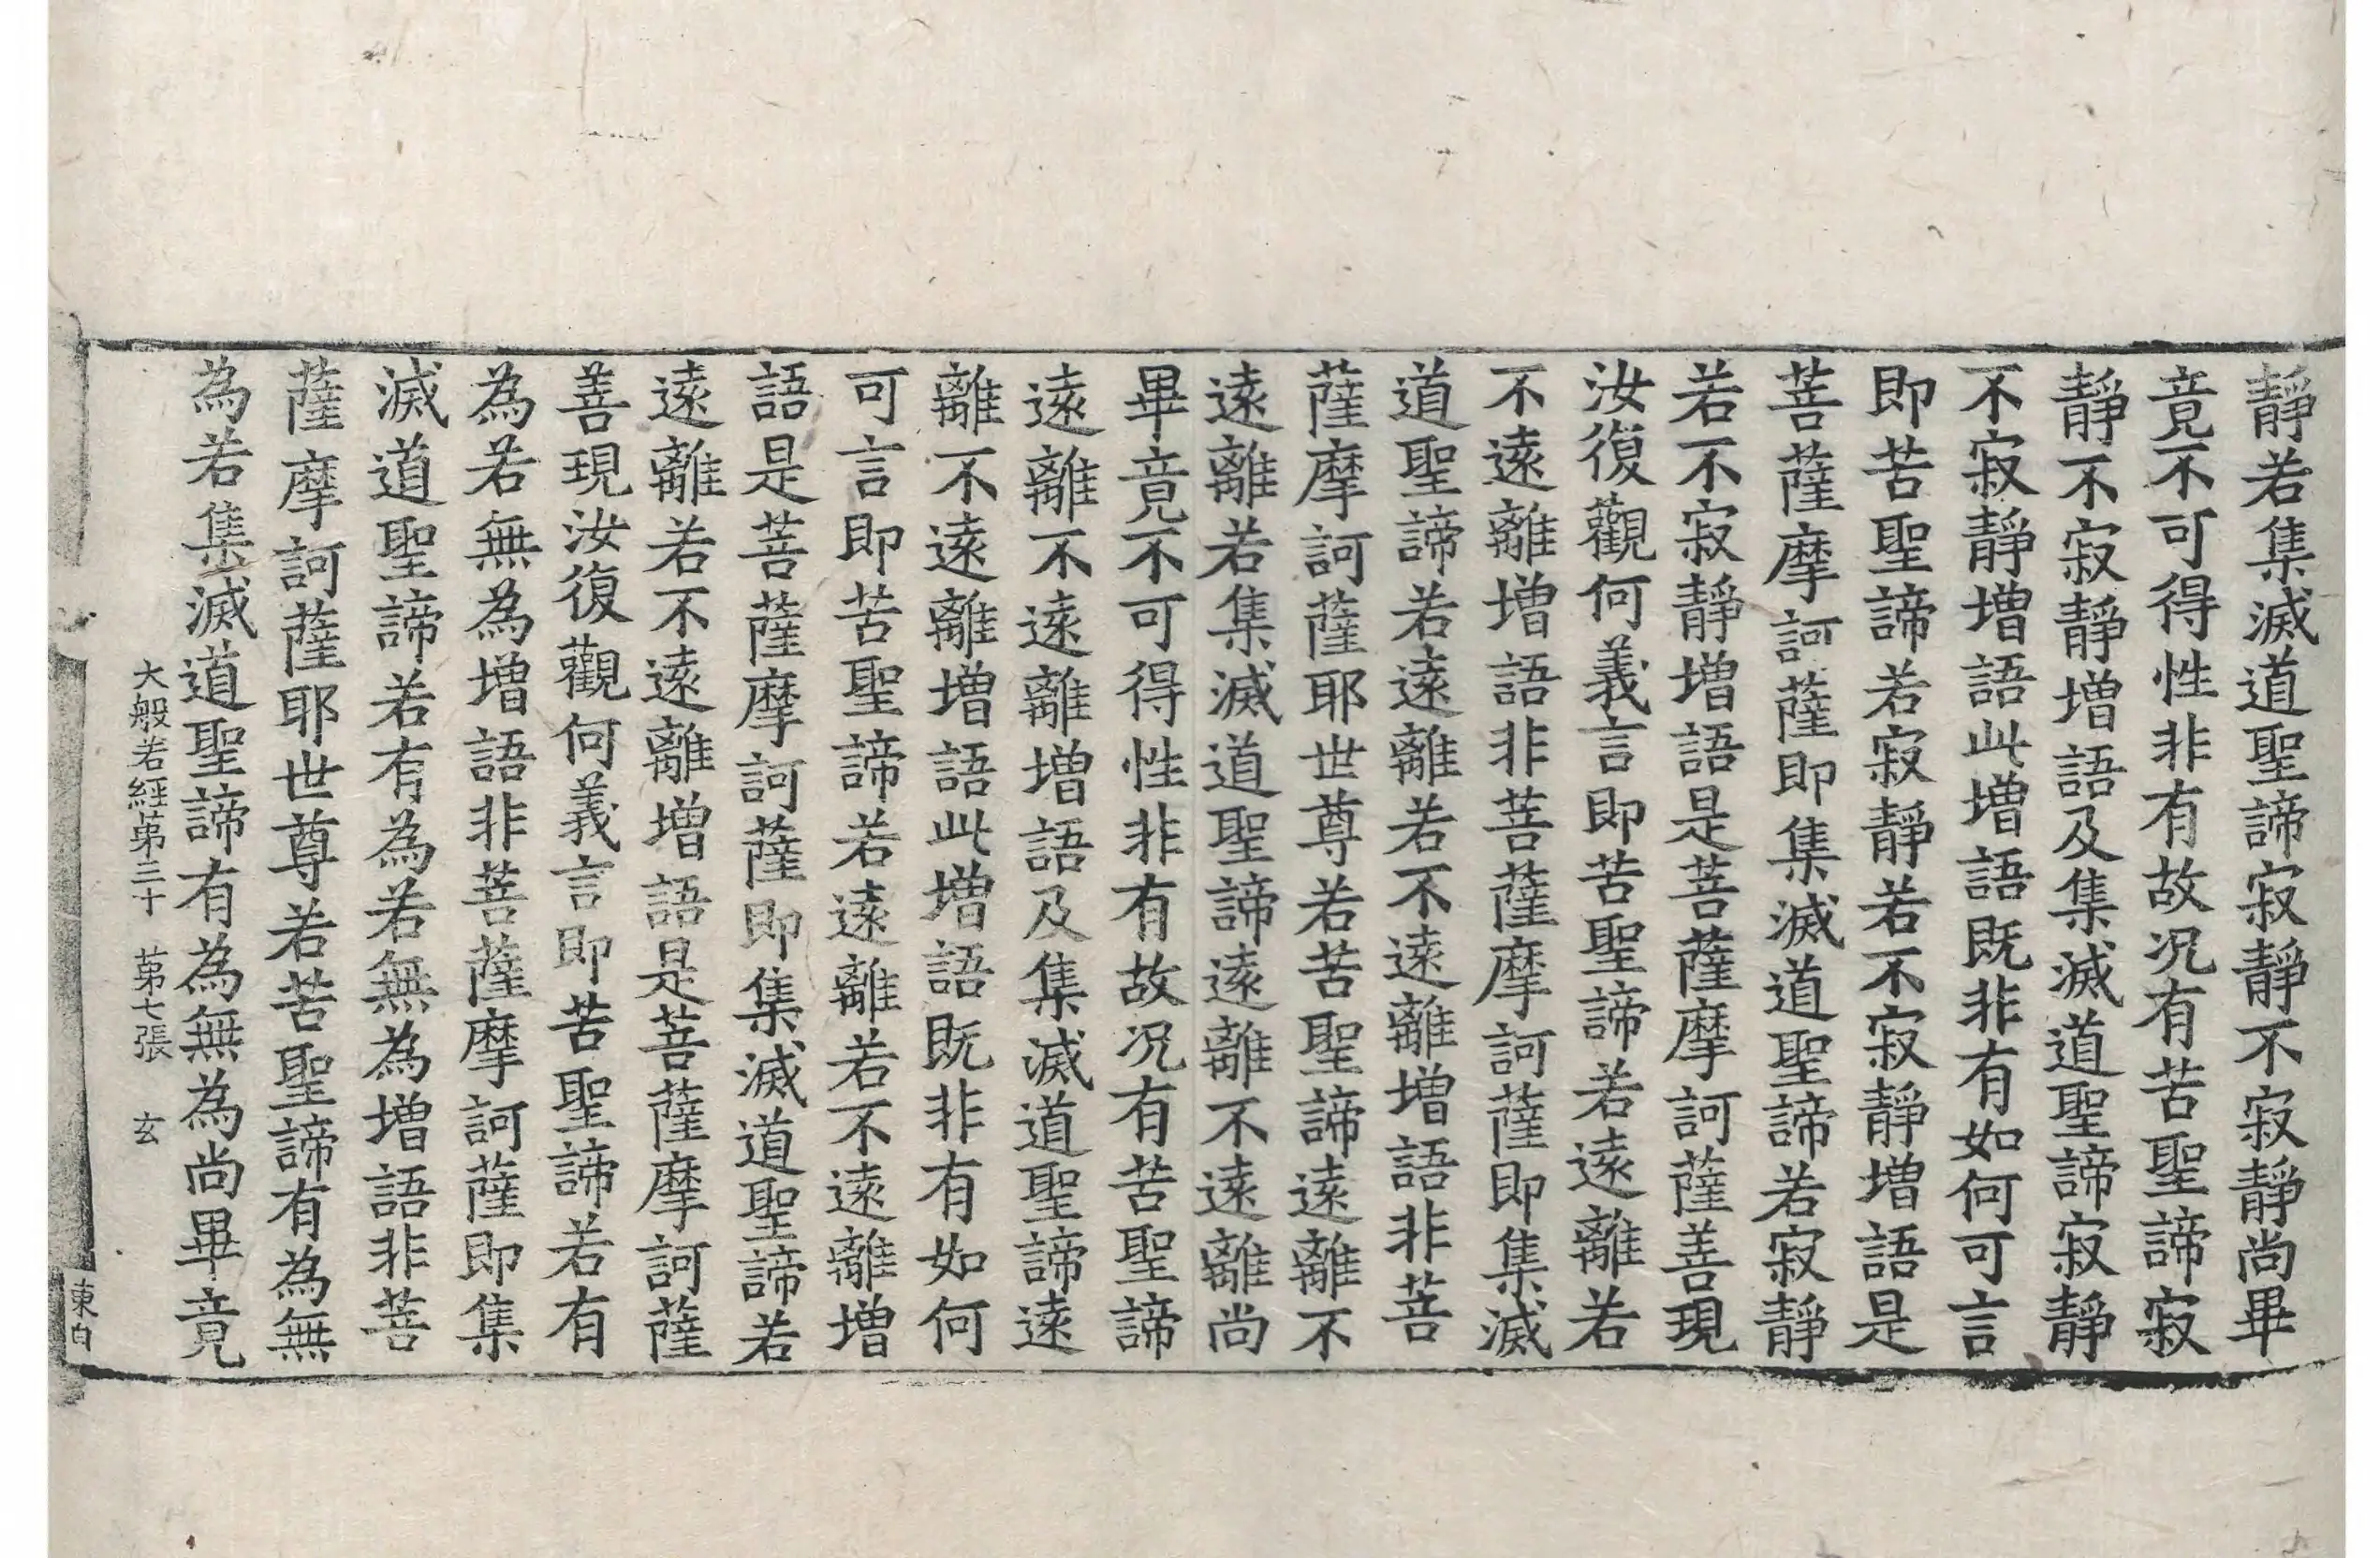 靜若集滅道聖諦寂靜不寂靜尚畢
竟不可得性非有故况有苦聖諦寂
靜不寂靜增語及集滅道聖諦寂靜
不寂靜增語此增語既非有如何可言
即苦聖諦若寂靜若不寂靜增語是
菩薩摩訶薩即集滅道聖諦若寂靜
若不寂靜增語是菩薩摩訶薩善現
汝復觀何義言即苦聖諦若遠離若
不遠離增語非菩薩摩訶薩即集滅
道聖諦若遠離若不遠離增語非菩
薩摩訶薩耶世尊若苦聖諦遠離不
遠離若集滅道聖諦遠離不遠離尚
畢竟不可得性非有故况有苦聖諦
遠離不遠離增語及集滅道聖諦遠
離不遠離增語此增語既非有如何
可言即苦聖諦若遠離若不遠離增
語是菩薩摩訶薩即集滅道聖諦若
遠離若不遠離增語是菩薩摩訶薩
善現汝復觀何義言即苦聖諦若有
為若無為增語非菩薩摩訶薩即集
滅道聖諦若有為若無為增語非菩
薩摩訶薩耶世尊若苦聖諦有為無
為若集滅道聖諦有為無為尚畢竟
大般若經苐三十　苐七張　玄
東白